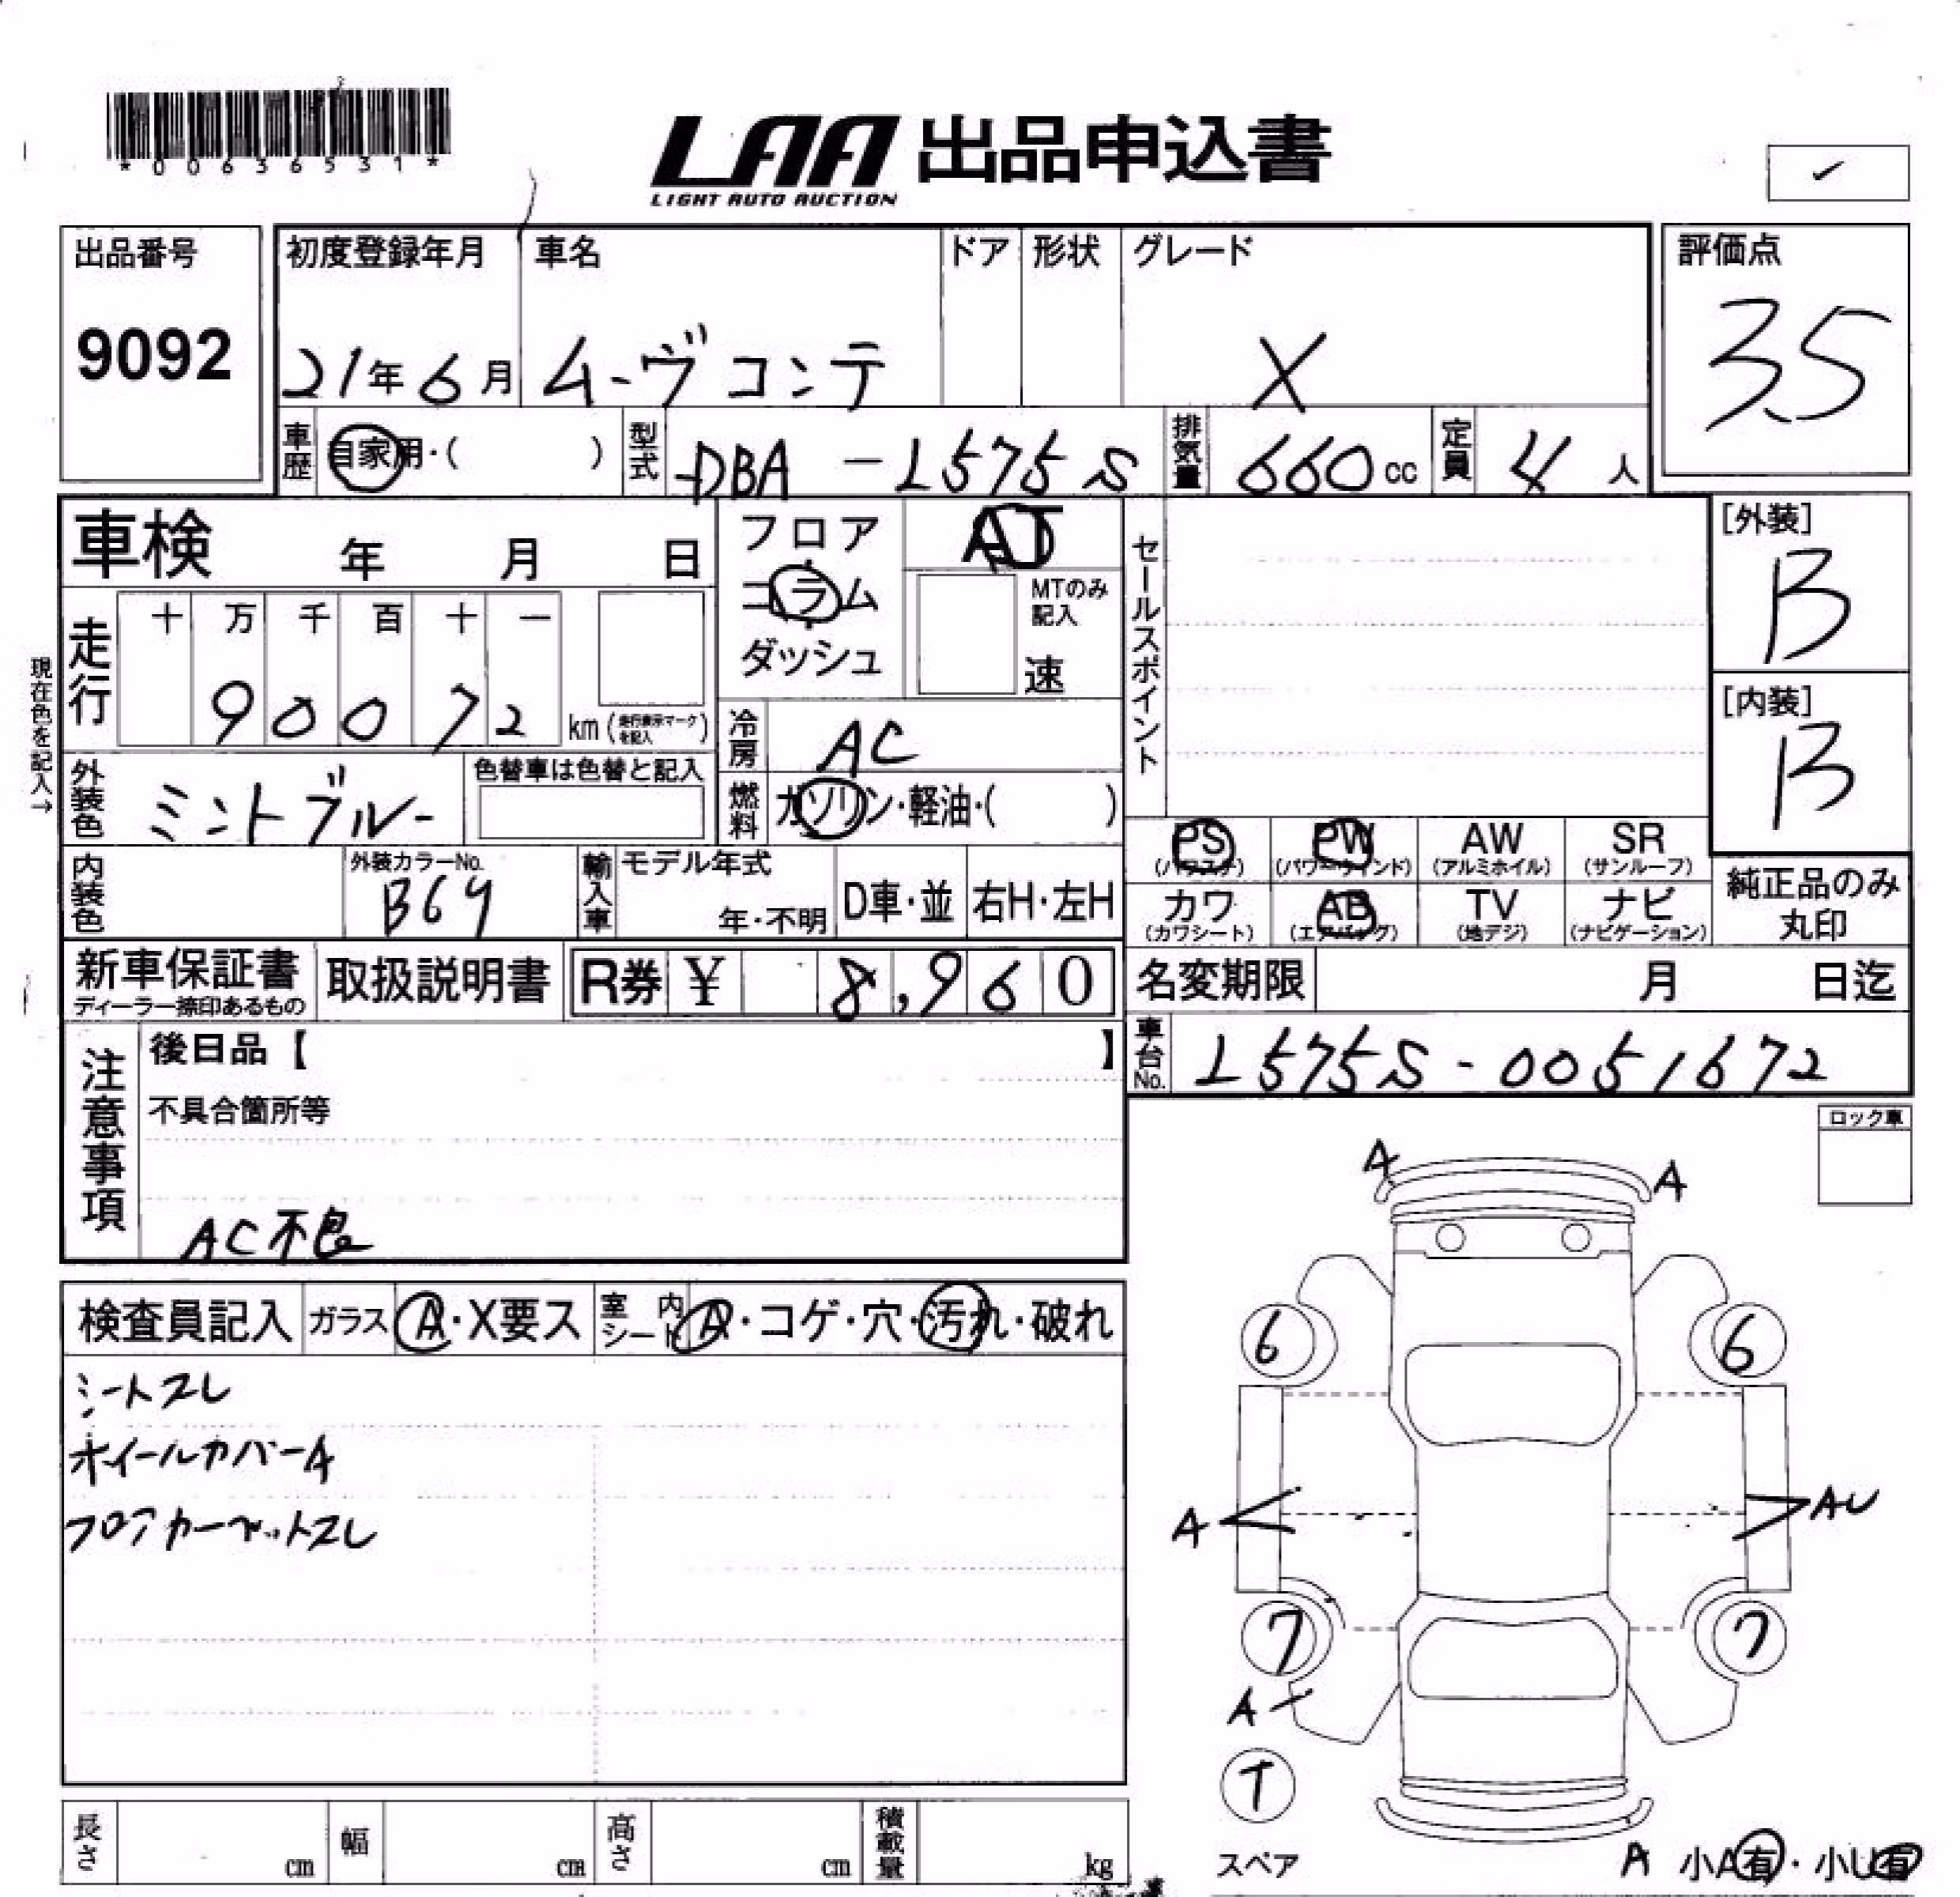 *00636531*
LAA 出品申込書
LIGHT AUTO AUCTION
✓
出品番号
9092
初度登録年月
21年6月
車名
ムーヴコンテ
ドア
形状
グレード
X
評価点
3.5
車歴
自家用・( )
型式
DBA-L575S
排気量
660cc
定員
4人
車検 年 月 日
現在色を記入→
走行
十 万 千 百 十 一
9 0 0 7 2
km(走行表示マークを記入)
フロア
コラム
ダッシュ
AT
MTのみ記入
速
冷房
AC
燃料
ガソリン・軽油・( )
セールスポイント
[外装]
B
[内装]
B
外装色
ミントブルー
色替車は色替と記入
内装色
外装カラーNo.
B64
輸入車
モデル年式
年・不明
D車・並
右H・左H
PS
(パワステ)
PW
(パワーウインド)
AW
(アルミホイル)
SR
(サンルーフ)
カワ
(カワシート)
AB
(エアバッグ)
TV
(地デジ)
ナビ
(ナビゲーション)
純正品のみ
丸印
新車保証書
ディーラー捺印あるもの
取扱説明書
R券 ¥ 8,960
名変期限 月 日迄
車台No.
L575S-0051672
注意事項
後日品【 】
不具合箇所等
AC不良
ロック車
検査員記入
ガラス
A・X要ス
室内
シート
A・コゲ・穴・汚れ・破れ
シートスレ
ホイールカバーA
フロアカーペットスレ
A
A
6
6
A
AU
7
7
A
T
スペア
A 小A有・小U有
長さ cm
幅 cm
高さ cm
積載量 kg